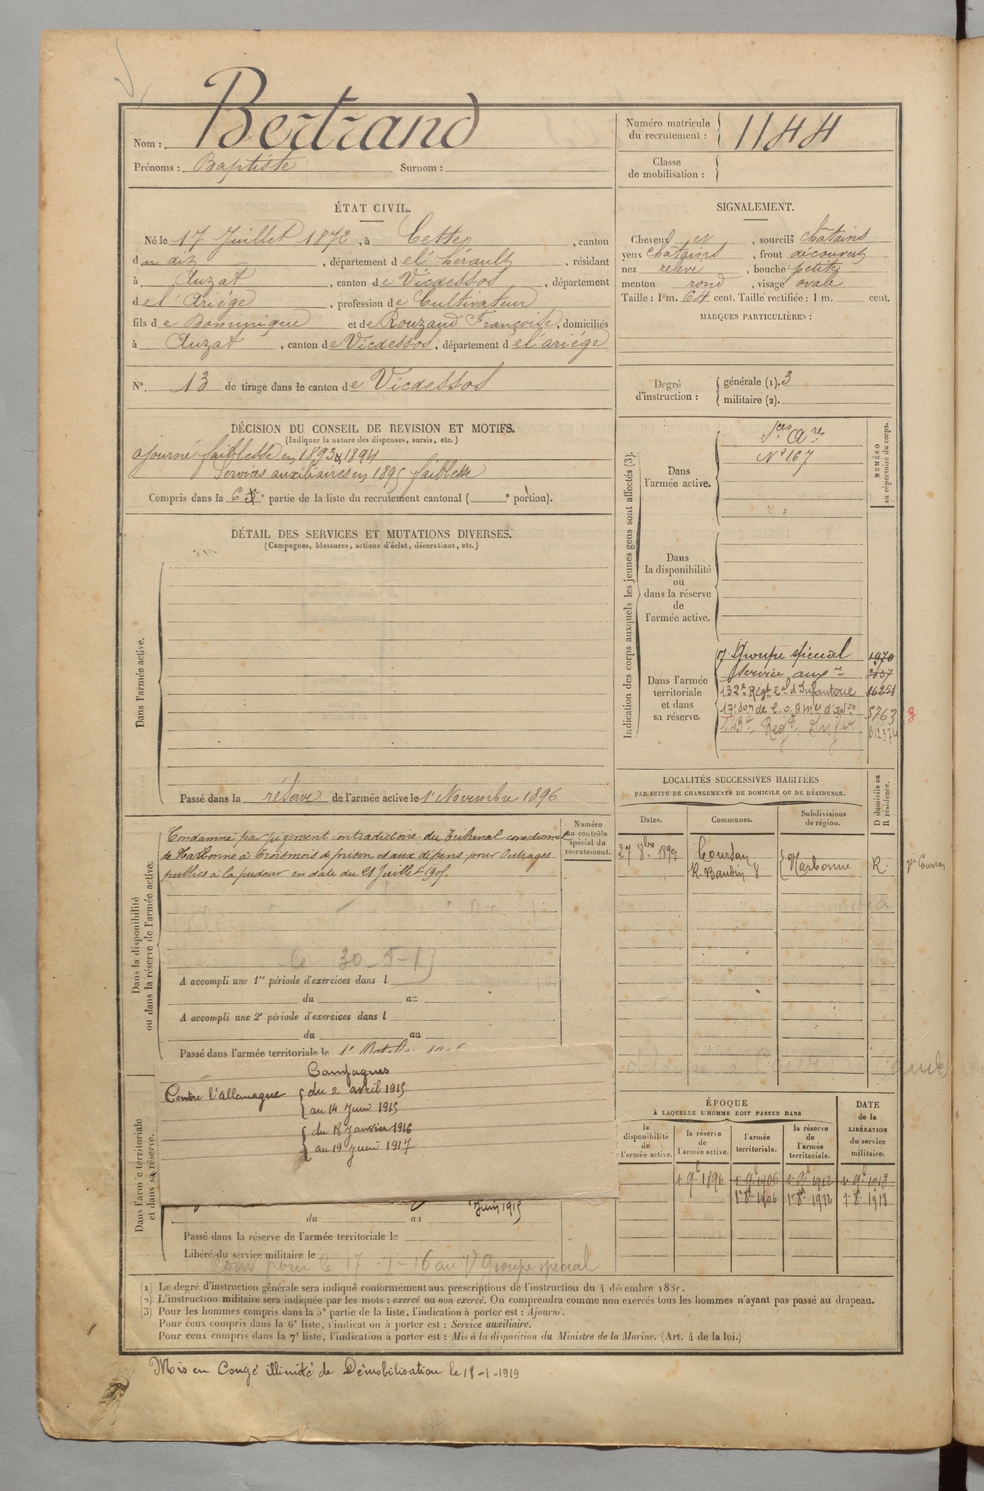 Nom : Bertrand
Prénoms : Baptiste Surnom :
Numéro matricule du recrutement : 1144
Classe de mobilisation :
ÉTAT CIVIL.
Né le 17 Juillet 1872, à Cette, canton
du dit, département de l'hérault, résidant
à Auzat, canton de Vicdessos, département
de l'Ariége, profession de Cultivateur
fils de Dominique et de Rouzaud Françoise, domiciliés
à Auzat, canton de Vicdessos, département de l'ariége
N° 13 de tirage dans le canton de Vicdessos
SIGNALEMENT.
Cheveux et, sourcils chatains
yeux chatains, front découvert
nez relevé, bouche petite
menton rond, visage ovale
Taille : 1 m. 64 cent. Taille rectifiée : 1 m. cent.
MARQUES PARTICULIÈRES :
Degré d'instruction : générale (1). 3
militaire (2).
DÉCISION DU CONSEIL DE REVISION ET MOTIFS.
(Indiquer la nature des dispenses, sursis, etc.)
ajourné faiblesse en 1893 & 1894
Services auxiliaires en 1895 faiblesse
Compris dans la 6e partie de la liste du recrutement cantonal ( e portion).
DÉTAIL DES SERVICES ET MUTATIONS DIVERSES.
(Campagnes, blessures, actions d'éclat, décorations, etc.)
Dans l'armée active.
Passé dans la réserve de l'armée active le 1er Novembre 1896
Indication des corps auxquels les jeunes gens sont affectés (3).
NUMÉRO au répertoire du corps.
Dans l'armée active.
Sces Qre
N° 167
Dans la disponibilité ou dans la réserve de l'armée active.
Dans l'armée territoriale et dans sa réserve.
7 Groupe spécial 1970
Service auxre
132e Régt tal d'Infanterie
5763 3
LOCALITÉS SUCCESSIVES HABITÉES
PAR SUITE DE CHANGEMENTS DE DOMICILE OU DE RÉSIDENCE.
Dates.
Communes.
Subdivisions de région.
D domicile ou R résidence.
27 8bre 1899 Coursan
Narbonne R.
Dans la disponibilité ou dans la réserve de l'armée active.
Numéro au contrôle spécial du recrutement.
Condamné par jugement contradictoire du Tribunal correctionnel
de Narbonne à trois mois de prison et aux dépens pour Outrages
publics à la pudeur en date du 21 juillet 1905.
le 30-5-15
A accompli une 1re période d'exercices dans l
du au
A accompli une 2e période d'exercices dans l
du au
Passé dans l'armée territoriale le
Dans l'armée territoriale et dans sa réserve.
Campagnes
Contre l'allemagne du 2 avril 1915
au 14 Juin 1915
du 18 Janvier 1916
au 19 Juin 1917
Juin 1915
du au
Passé dans la réserve de l'armée territoriale le
Libéré du service militaire le
le 17-1-16 au 7e Groupe spécial
ÉPOQUE
À LAQUELLE L'HOMME DOIT PASSER DANS
DATE de la LIBÉRATION du service militaire.
la disponibilité de l'armée active.
la réserve de l'armée active.
l'armée territoriale.
la réserve de l'armée territoriale.
1er 9bre 1896 1er 9bre 1906 1er 9bre 1912 1er 9bre 1918
1er 8bre 1906 1er 8bre 1912 1er 8bre 1918
(1) Le degré d'instruction générale sera indiqué conformément aux prescriptions de l'instruction du 4 décembre 1889.
(2) L'instruction militaire sera indiquée par les mots : exercé ou non exercé. On comprendra comme non exercés tous les hommes n'ayant pas passé au drapeau.
(3) Pour les hommes compris dans la 5e partie de la liste, l'indication à porter est : Ajourné.
Pour ceux compris dans la 6e liste, l'indication à porter est : Service auxiliaire.
Pour ceux compris dans la 7e liste, l'indication à porter est : Mis à la disposition du Ministre de la Marine. (Art. 4 de la loi.)
Mis en Congé illimité de Démobilisation le 18-1-1919